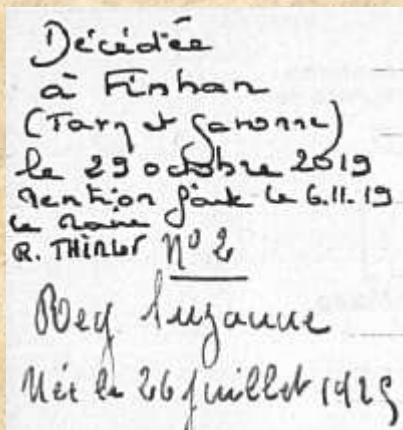 Décédée
à Finhan
(Tarn et Garonne)
le 29 octobre 2019
Mention faite le 6.11.19
le Maire
R. THIRLET N° 2
Rey Suzanne
Née le 26 juillet 1925